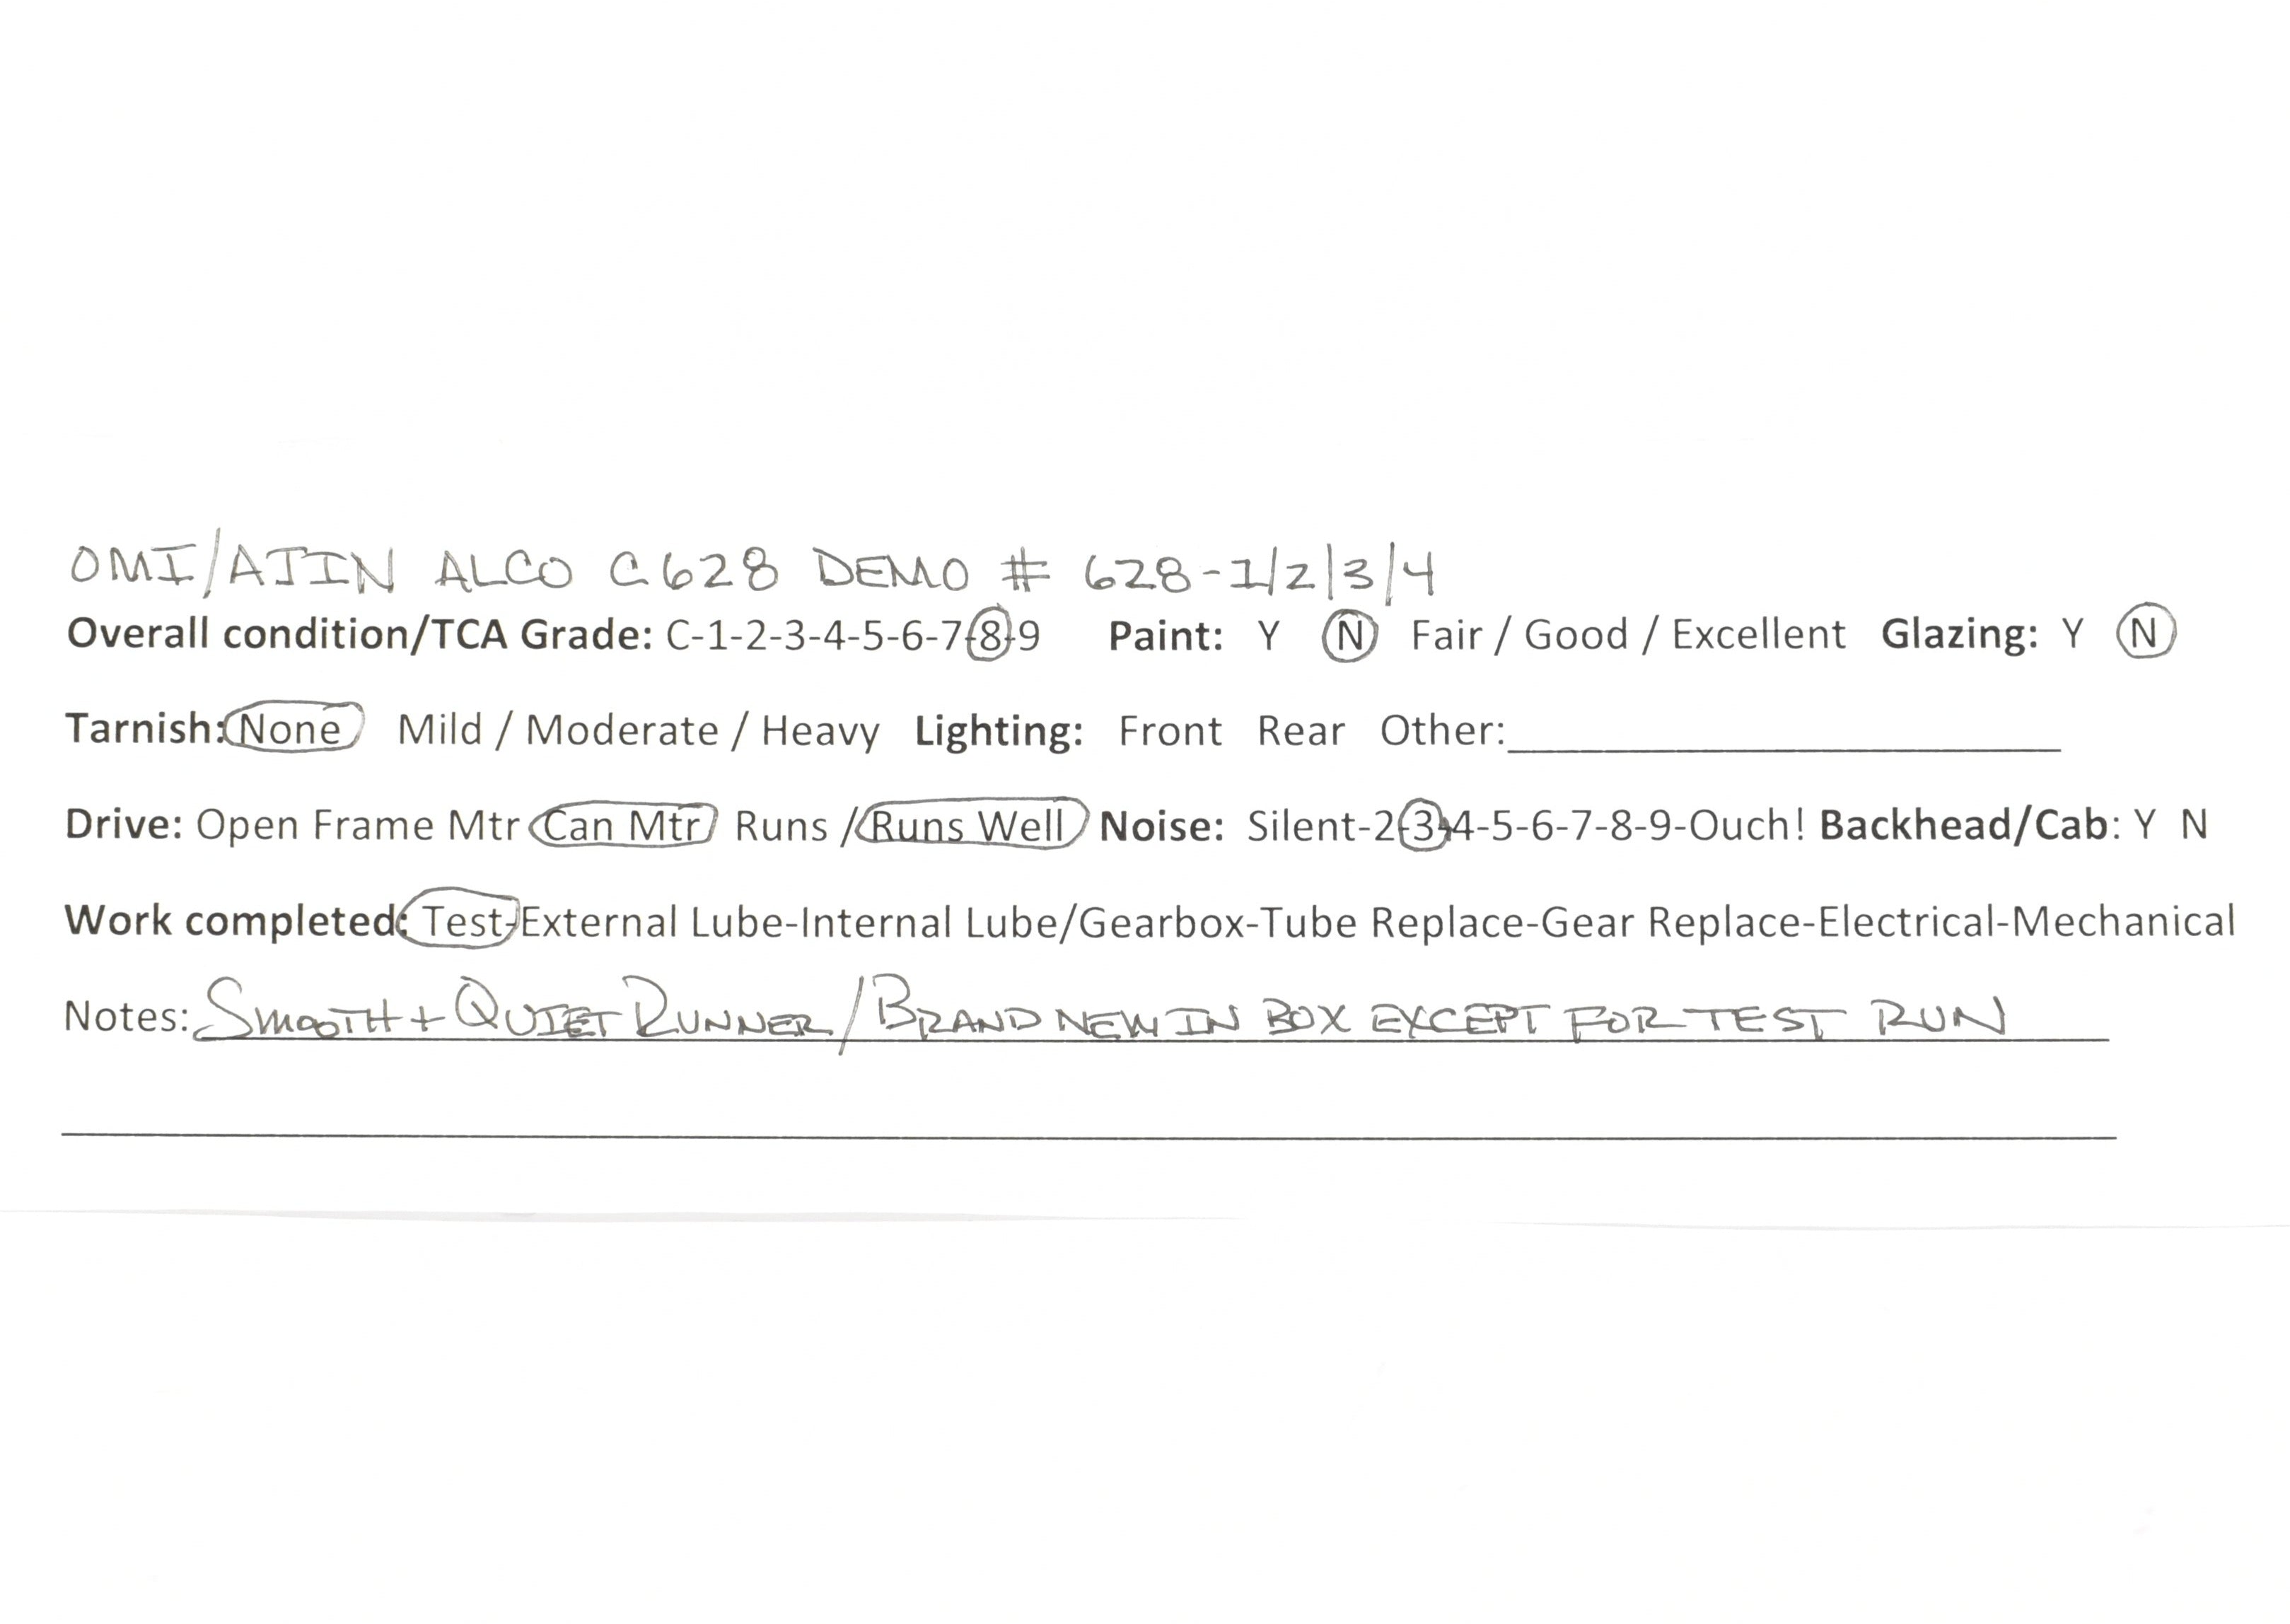 OMI/AJIN ALCO C628 DEMO # 628-1/2/3/4
Overall condition/TCA Grade: C-1-2-3-4-5-6-7-8-9 Paint: Y N Fair / Good / Excellent Glazing: Y N
Tarnish: None Mild / Moderate / Heavy Lighting: Front Rear Other:
Drive: Open Frame Mtr Can Mtr Runs / Runs Well Noise: Silent-2-3-4-5-6-7-8-9-Ouch! Backhead/Cab: Y N
Work completed: Test-External Lube-Internal Lube/Gearbox-Tube Replace-Gear Replace-Electrical-Mechanical
Notes: SMOOTH + QUIET RUNNER / BRAND NEW IN BOX EXCEPT FOR TEST RUN